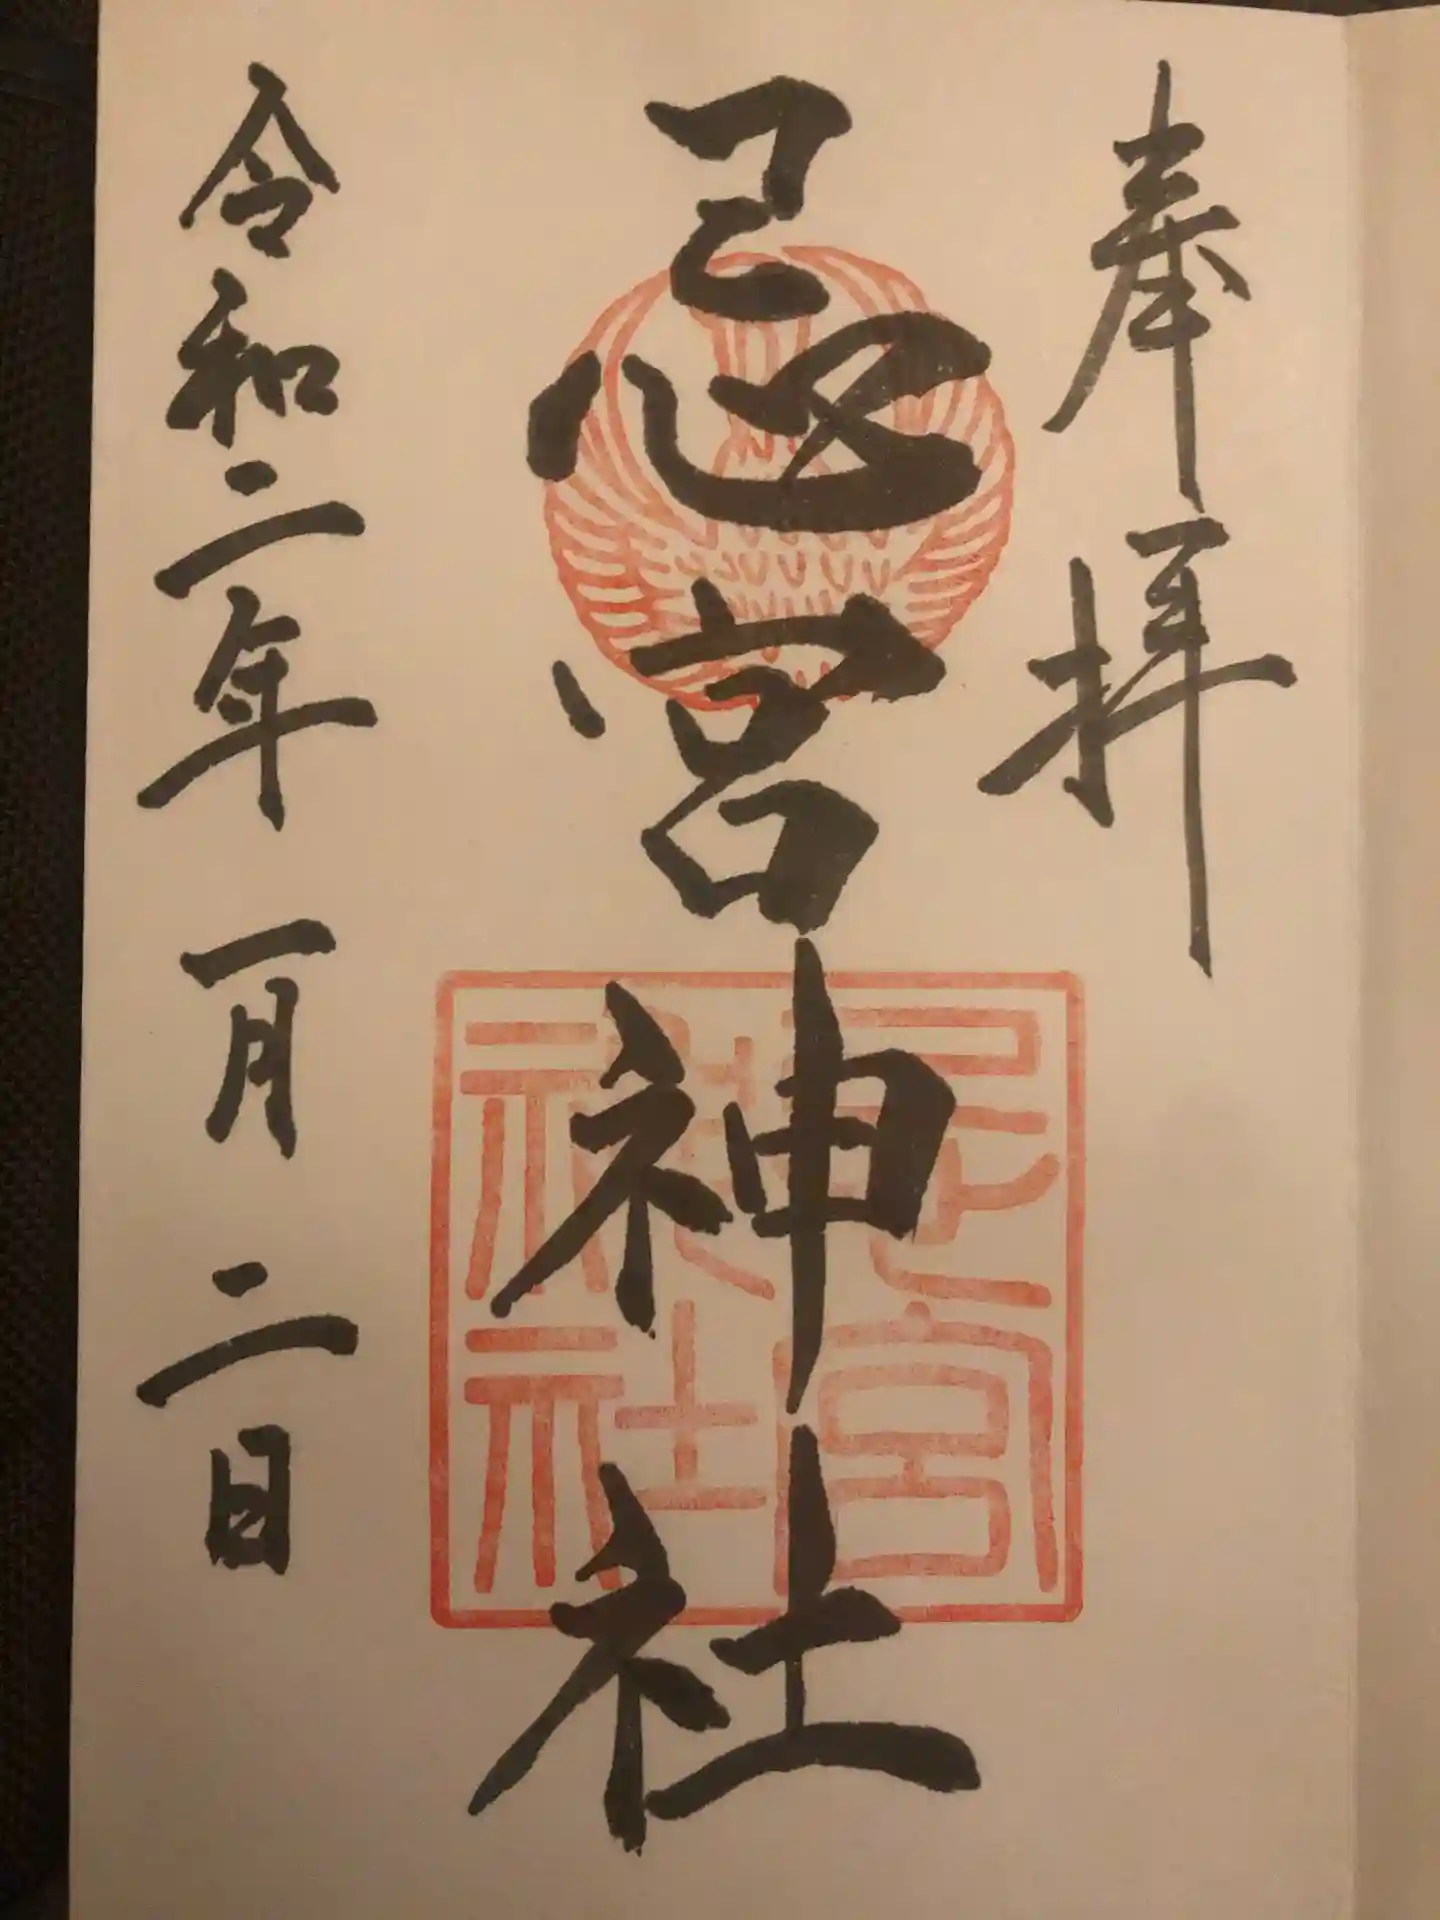 奉拝
忌宮神社
令和二年一月二日
忌宮
神社